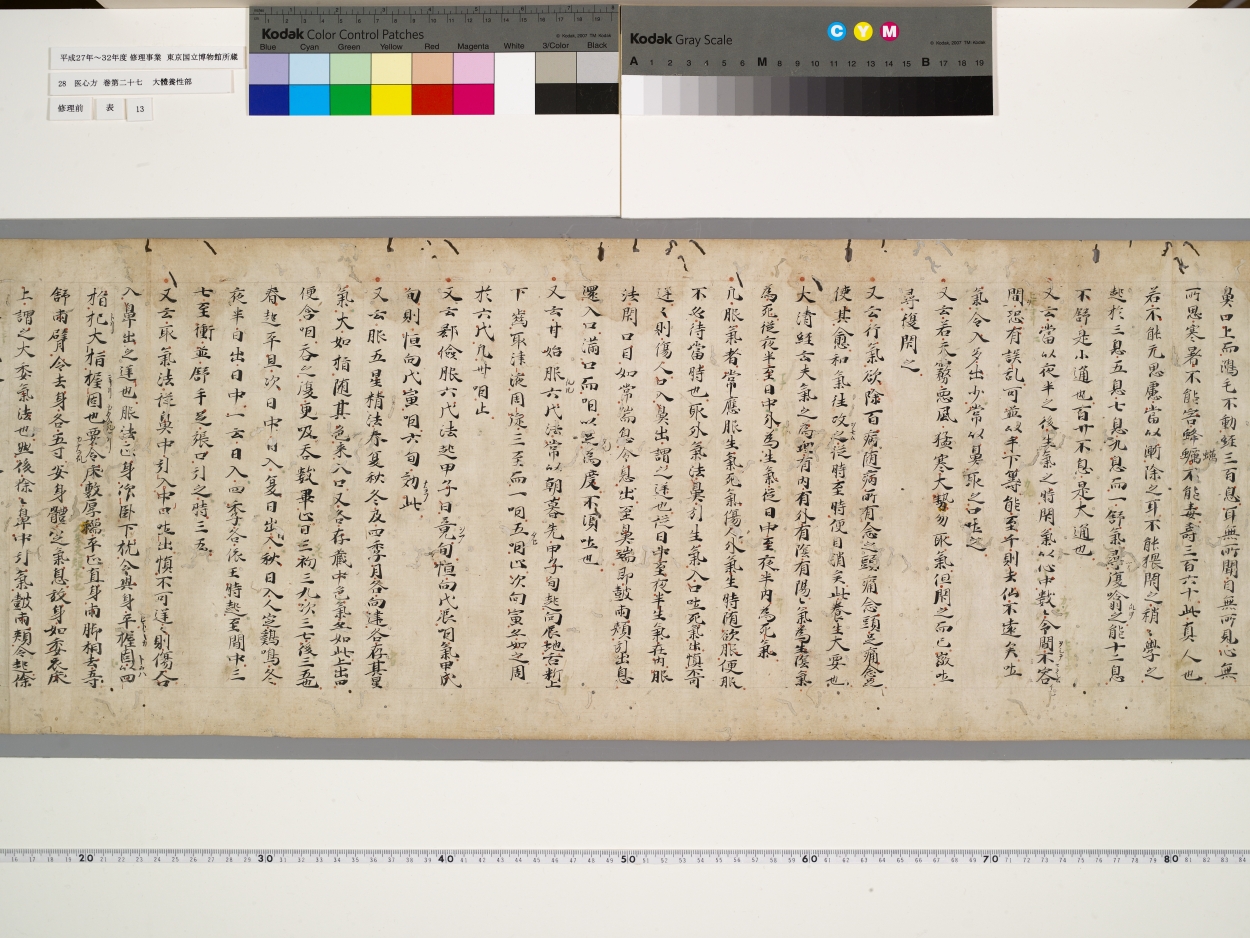 平成27年～32年度 修理事業 東京国立博物館所蔵
28 医心方 巻第二十七 大體養性部
修理前 表 13
Kodak Color Control Patches
© Kodak, 2007 TM: Kodak
Blue Cyan Green Yellow Red Magenta White 3/Color Black
Kodak Gray Scale
C Y M
© Kodak, 2007 TM: Kodak
A 1 2 3 4 5 6 M 8 9 10 11 12 13 14 15 B 17 18 19
鼻口上而鴻毛不動經三百息耳無所聞目無所見心無
所思寒暑不能害蜂蠆不能毒壽三百六十此真人也
若不能元思慮當以漸除之耳不能猥閇之稍〻學之
起於三息五息七息九息而一舒氣尋復噏之能十二息
不舒是小通也百廿不息是大通也
又云當以夜半之後生氣之時閇氣以心中數〻令間不容
間恐有誤乱可並以手下筭能至千則去仙不遠矣吐
氣令入多出少常以鼻取之口吐之
又云若天霧惡風猛寒大熱勿取氣但閇之而已微吐
尋復閇之
又云行氣欲除百病随病所有念之頭痛念頭足痛念足
使其愈和氣往攻之從時至時便自消矣此養生大要也
大清経云夫氣之為理有内有外有陰有陽〻氣為生陰氣
為死從夜半至日中外為生氣從日中至夜半内為死氣
凡服氣者常應服生氣死氣傷人外氣生時随欲服便服
不必待當時也取外氣法鼻引生氣入口吐死氣出慎不可
逆〻則傷人口入鼻出謂之逆也從日中至夜半生氣在内服
法閇口目如常喘息令息出至鼻端即鼓兩頬引出息
還入口滿口而咽以足為度不須吐也
又云甘始服六代法常以朝暮先甲子旬起向辰地舌料上
下齒取津液周旋三至而一咽五咽止次向寅如之周
於六代凡卅咽止
又云郄儉服六代法起甲子日竟旬恒向代辰咽氣甲戌
旬則恒向代寅咽六旬効此
又云服五星精法春夏秋冬及四季月各向建各存其星
氣大如指随其色来入口又各存藏中色氣並如此上出口
便含咽呑之復更吸呑數畢止日三初三九次三七後三五
春起平旦次日中日入夏日出入秋日入人定鷄鳴冬
夜半日出日中一云日入四季各依王時起至間中三
七至衝並舒手足張口引之時三五
又云取氣法從鼻中引入中口吐出慎不可逆〻則傷人合
入鼻出之逆也服法正身次卧下枕令與身平握固以四
指把大指握固也要令床敷厚穤平正直身兩脚相去五寸
舒兩臂令去身各五寸安身體定氣息放身如委衣床
上謂之大委氣法也然後徐〻鼻中引氣鼓兩頬令起徐